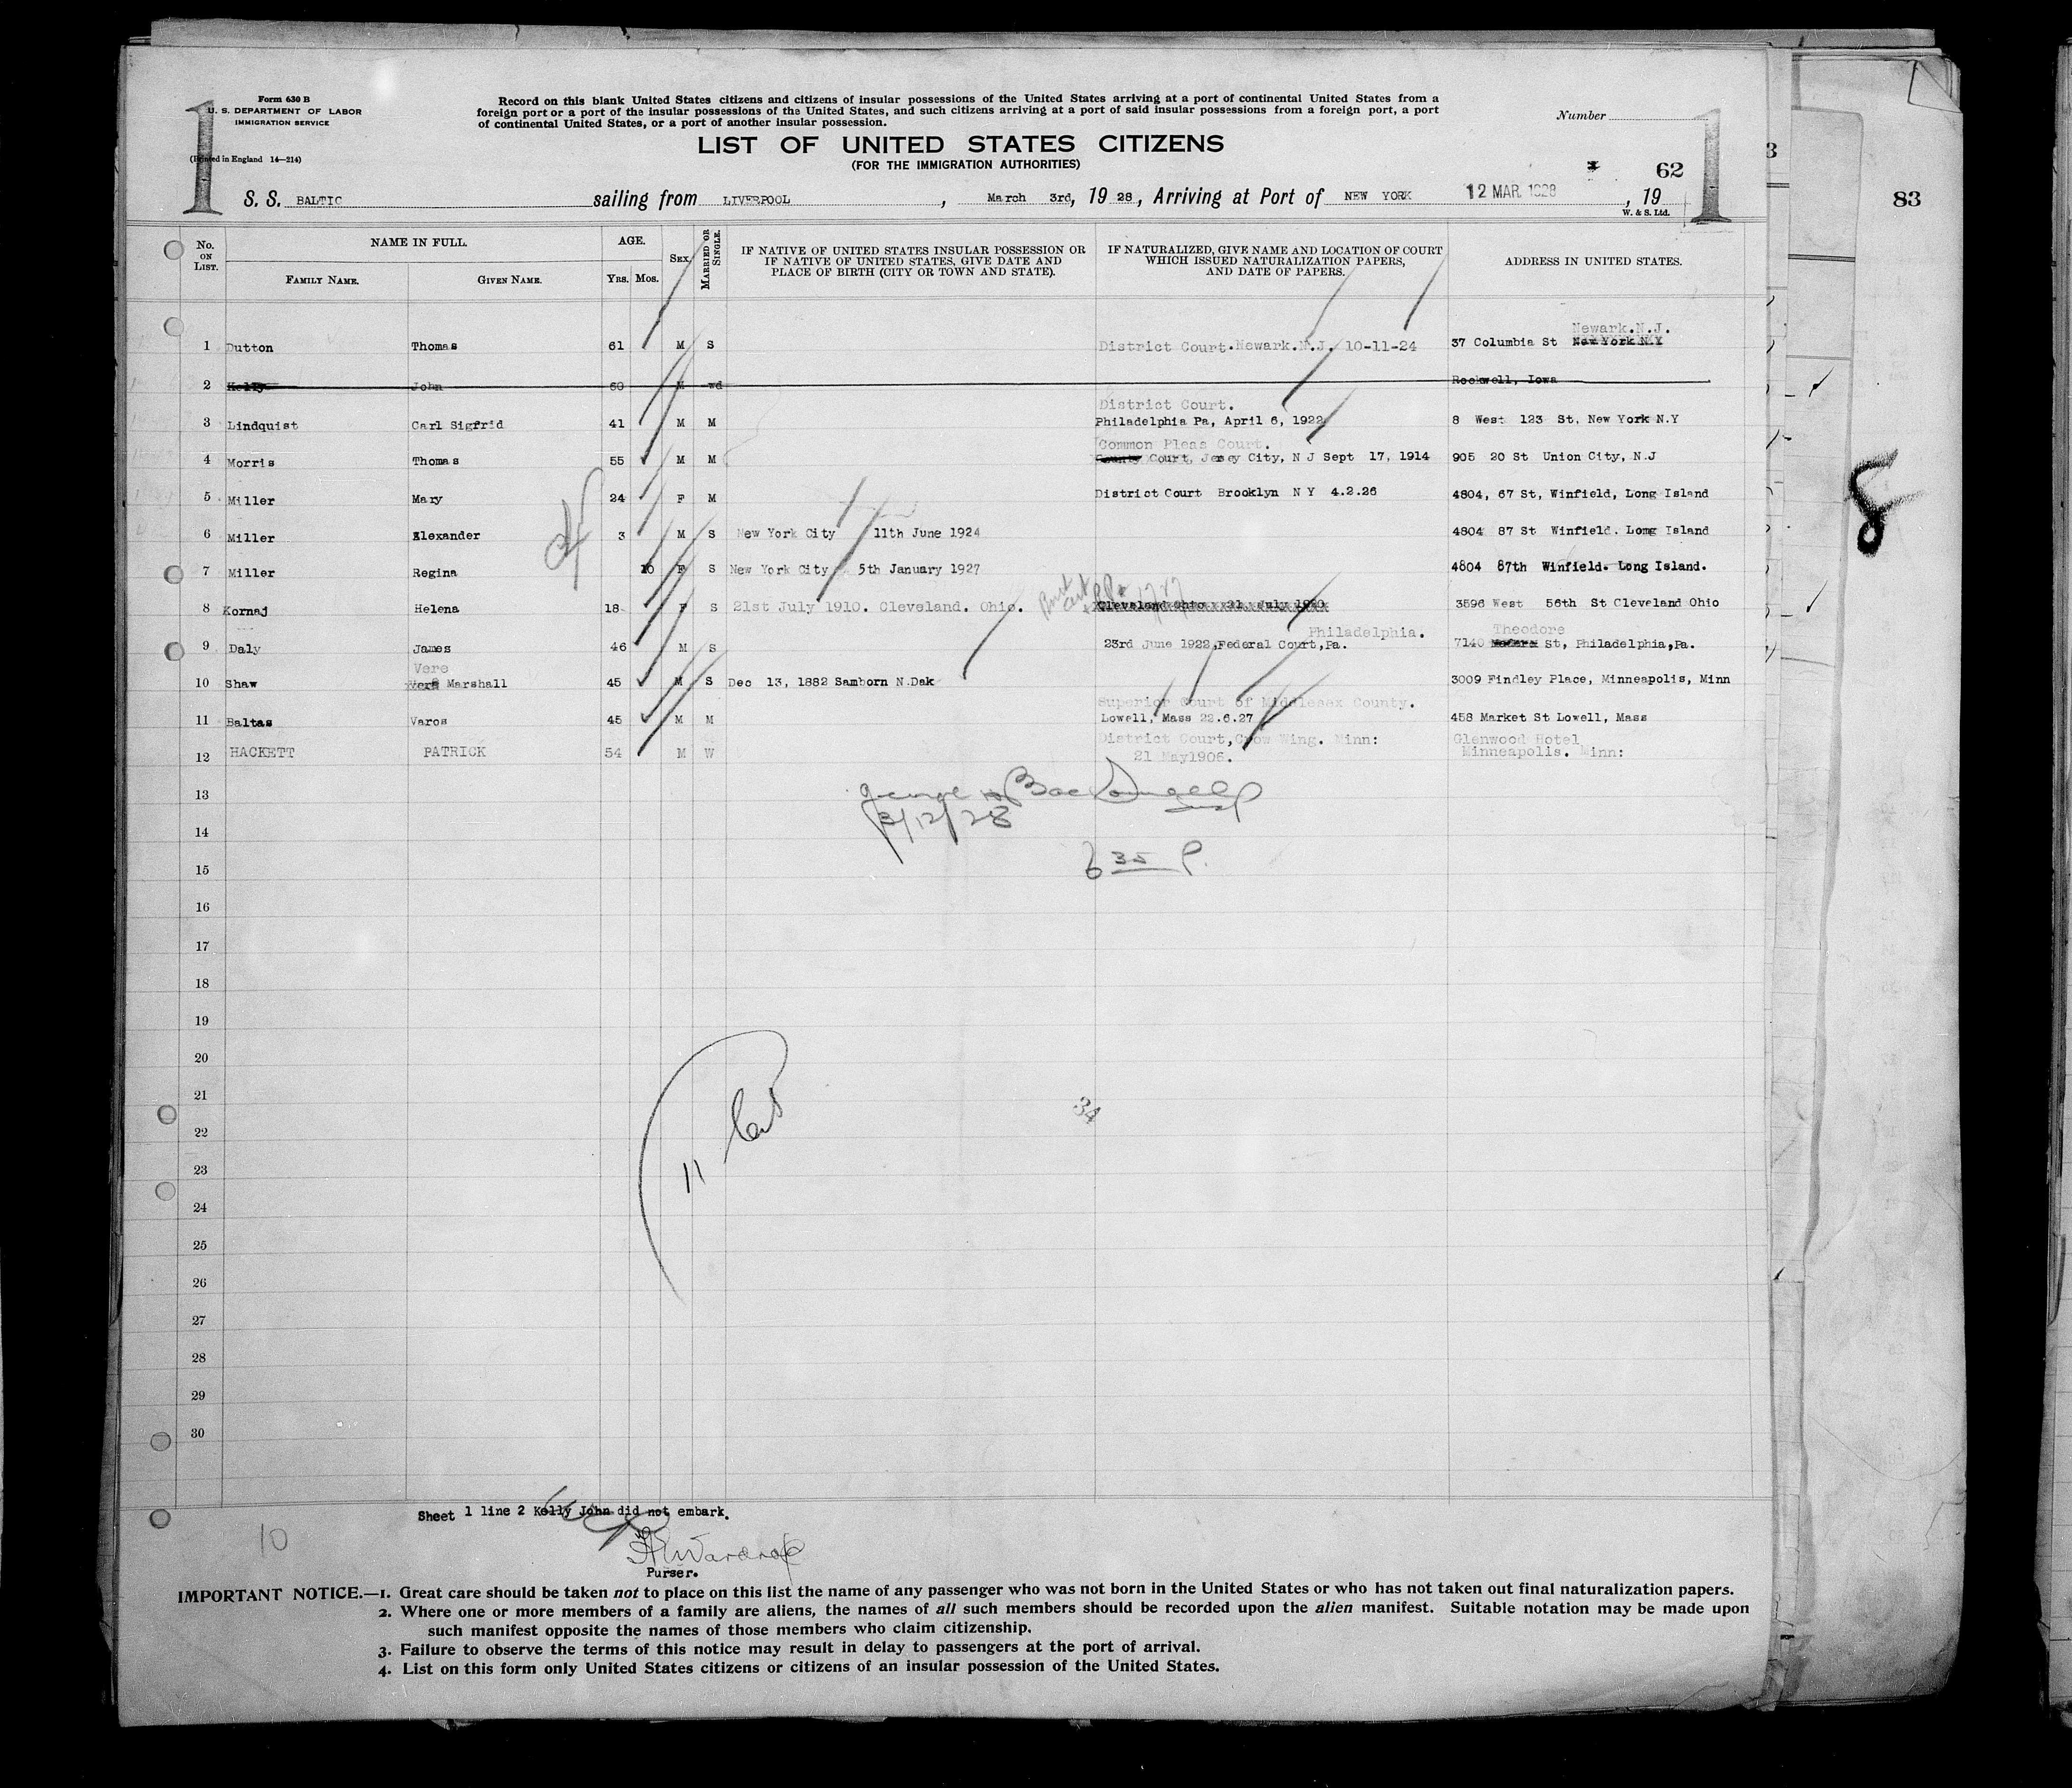 Form 630 B
U. S. DEPARTMENT OF LABOR
IMMIGRATION SERVICE
(Printed in England 14—214)
1
Record on this blank United States citizens and citizens of insular possessions of the United States arriving at a port of continental United States from a
foreign port or a port of the insular possessions of the United States, and such citizens arriving at a port of said insular possessions from a foreign port, a port
of continental United States, or a port of another insular possession.
LIST OF UNITED STATES CITIZENS
(FOR THE IMMIGRATION AUTHORITIES)
Number
1
62
83
S. S. BALTIC sailing from LIVERPOOL, March 3rd, 19 28, Arriving at Port of NEW YORK 12 MAR 1928, 19
W. & S. Ltd.
No. ON LIST. NAME IN FULL. AGE. SEX. MARRIED OR SINGLE. IF NATIVE OF UNITED STATES INSULAR POSSESSION OR IF NATIVE OF UNITED STATES, GIVE DATE AND PLACE OF BIRTH (CITY OR TOWN AND STATE). IF NATURALIZED, GIVE NAME AND LOCATION OF COURT WHICH ISSUED NATURALIZATION PAPERS, AND DATE OF PAPERS. ADDRESS IN UNITED STATES.
FAMILY NAME. GIVEN NAME. YRS. MOS.
Newark.N.J.
1 Dutton Thomas 61 M S District Court.Newark.N.J. 10-11-24 37 Columbia St New York N.Y
2 Kelly John 60 M wd Rockwell, Iowa
District Court.
3 Lindquist Carl Sigfrid 41 M M Philadelphia Pa, April 6, 1922 8 West 123 St, New York N.Y
Common Pleas Court.
4 Morris Thomas 55 M M County Court, Jersey City, N J Sept 17, 1914 905 20 St Union City, N.J
5 Miller Mary 24 F M District Court Brooklyn N Y 4.2.26 4804, 67 St, Winfield, Long Island
6 Miller Alexander 3 M S New York City 11th June 1924 4804 87 St Winfield. Long Island
7 Miller Regina 10 F S New York City 5th January 1927 4804 87th Winfield. Long Island.
8 Kornaj Helena 18 F S 21st July 1910. Cleveland. Ohio. Cleveland Ohio 21 July 1910 3596 West 56th St Cleveland Ohio
Philadelphia. Theodore
9 Daly James 46 M S 23rd June 1922,Federal Court,Pa. 7140 St, Philadelphia,Pa.
Vere
10 Shaw Vera Marshall 45 M S Dec 13, 1882 Samborn N.Dak 3009 Findley Place, Minneapolis, Minn
Superior Court of Middlesex County.
11 Baltas Varos 45 M M Lowell, Mass 22.6.27 458 Market St Lowell, Mass
District Court,Crow Wing. Minn: Glenwood Hotel
12 HACKETT PATRICK 54 M W 21 May1906. Minneapolis. Minn:
13
3/12/28
14
6 35 P.
15
16
17
18
19
20
21
34
22
23
11
24
25
26
27
28
29
30
Sheet 1 line 2 Kelly John did not embark.
10
Wardrop
Purser.
IMPORTANT NOTICE.—1. Great care should be taken not to place on this list the name of any passenger who was not born in the United States or who has not taken out final naturalization papers.
2. Where one or more members of a family are aliens, the names of all such members should be recorded upon the alien manifest. Suitable notation may be made upon
such manifest opposite the names of those members who claim citizenship.
3. Failure to observe the terms of this notice may result in delay to passengers at the port of arrival.
4. List on this form only United States citizens or citizens of an insular possession of the United States.